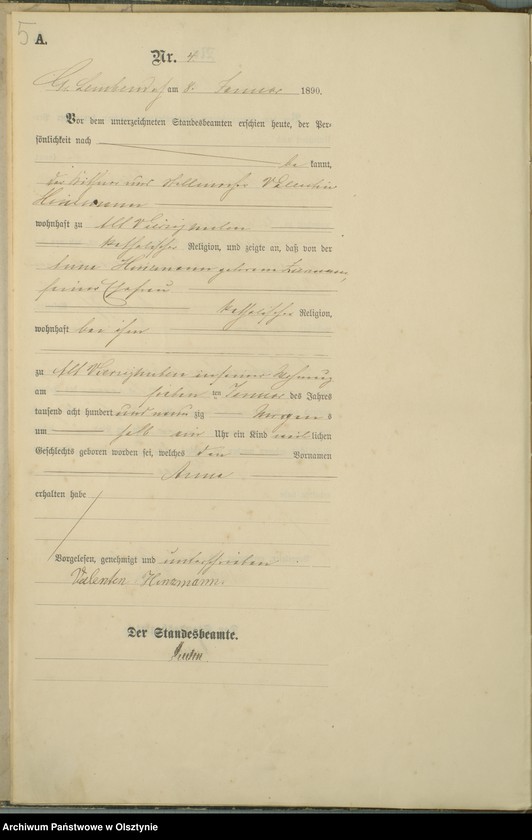 5
A.
Nr. 4
Gr. Lemkendorf am 8. Januar 1890.
Vor dem unterzeichneten Standesbeamten erschien heute, der Per-
sönlichkeit nach
be kannt,
der Käthner und Valentin
Hinzmann
wohnhaft zu Alt Vierzighuben
katholischer Religion, und zeigte an, daß von der
Anna Hinzmann geborene
seiner Ehefrau
katholischer Religion,
wohnhaft bei ihm
zu Alt Vierzighuben in seiner Wohnung
am sieben ten Januar des Jahres
tausend acht hundert und neun zig Morgens
um halb ein Uhr ein Kind weiblichen
Geschlechts geboren worden sei, welches den Vornamen
Anna
erhalten habe
Vorgelesen, genehmigt und unterschrieben
Valentin Hinzmann.
Der Standesbeamte.
Archiwum Państwowe w Olsztynie